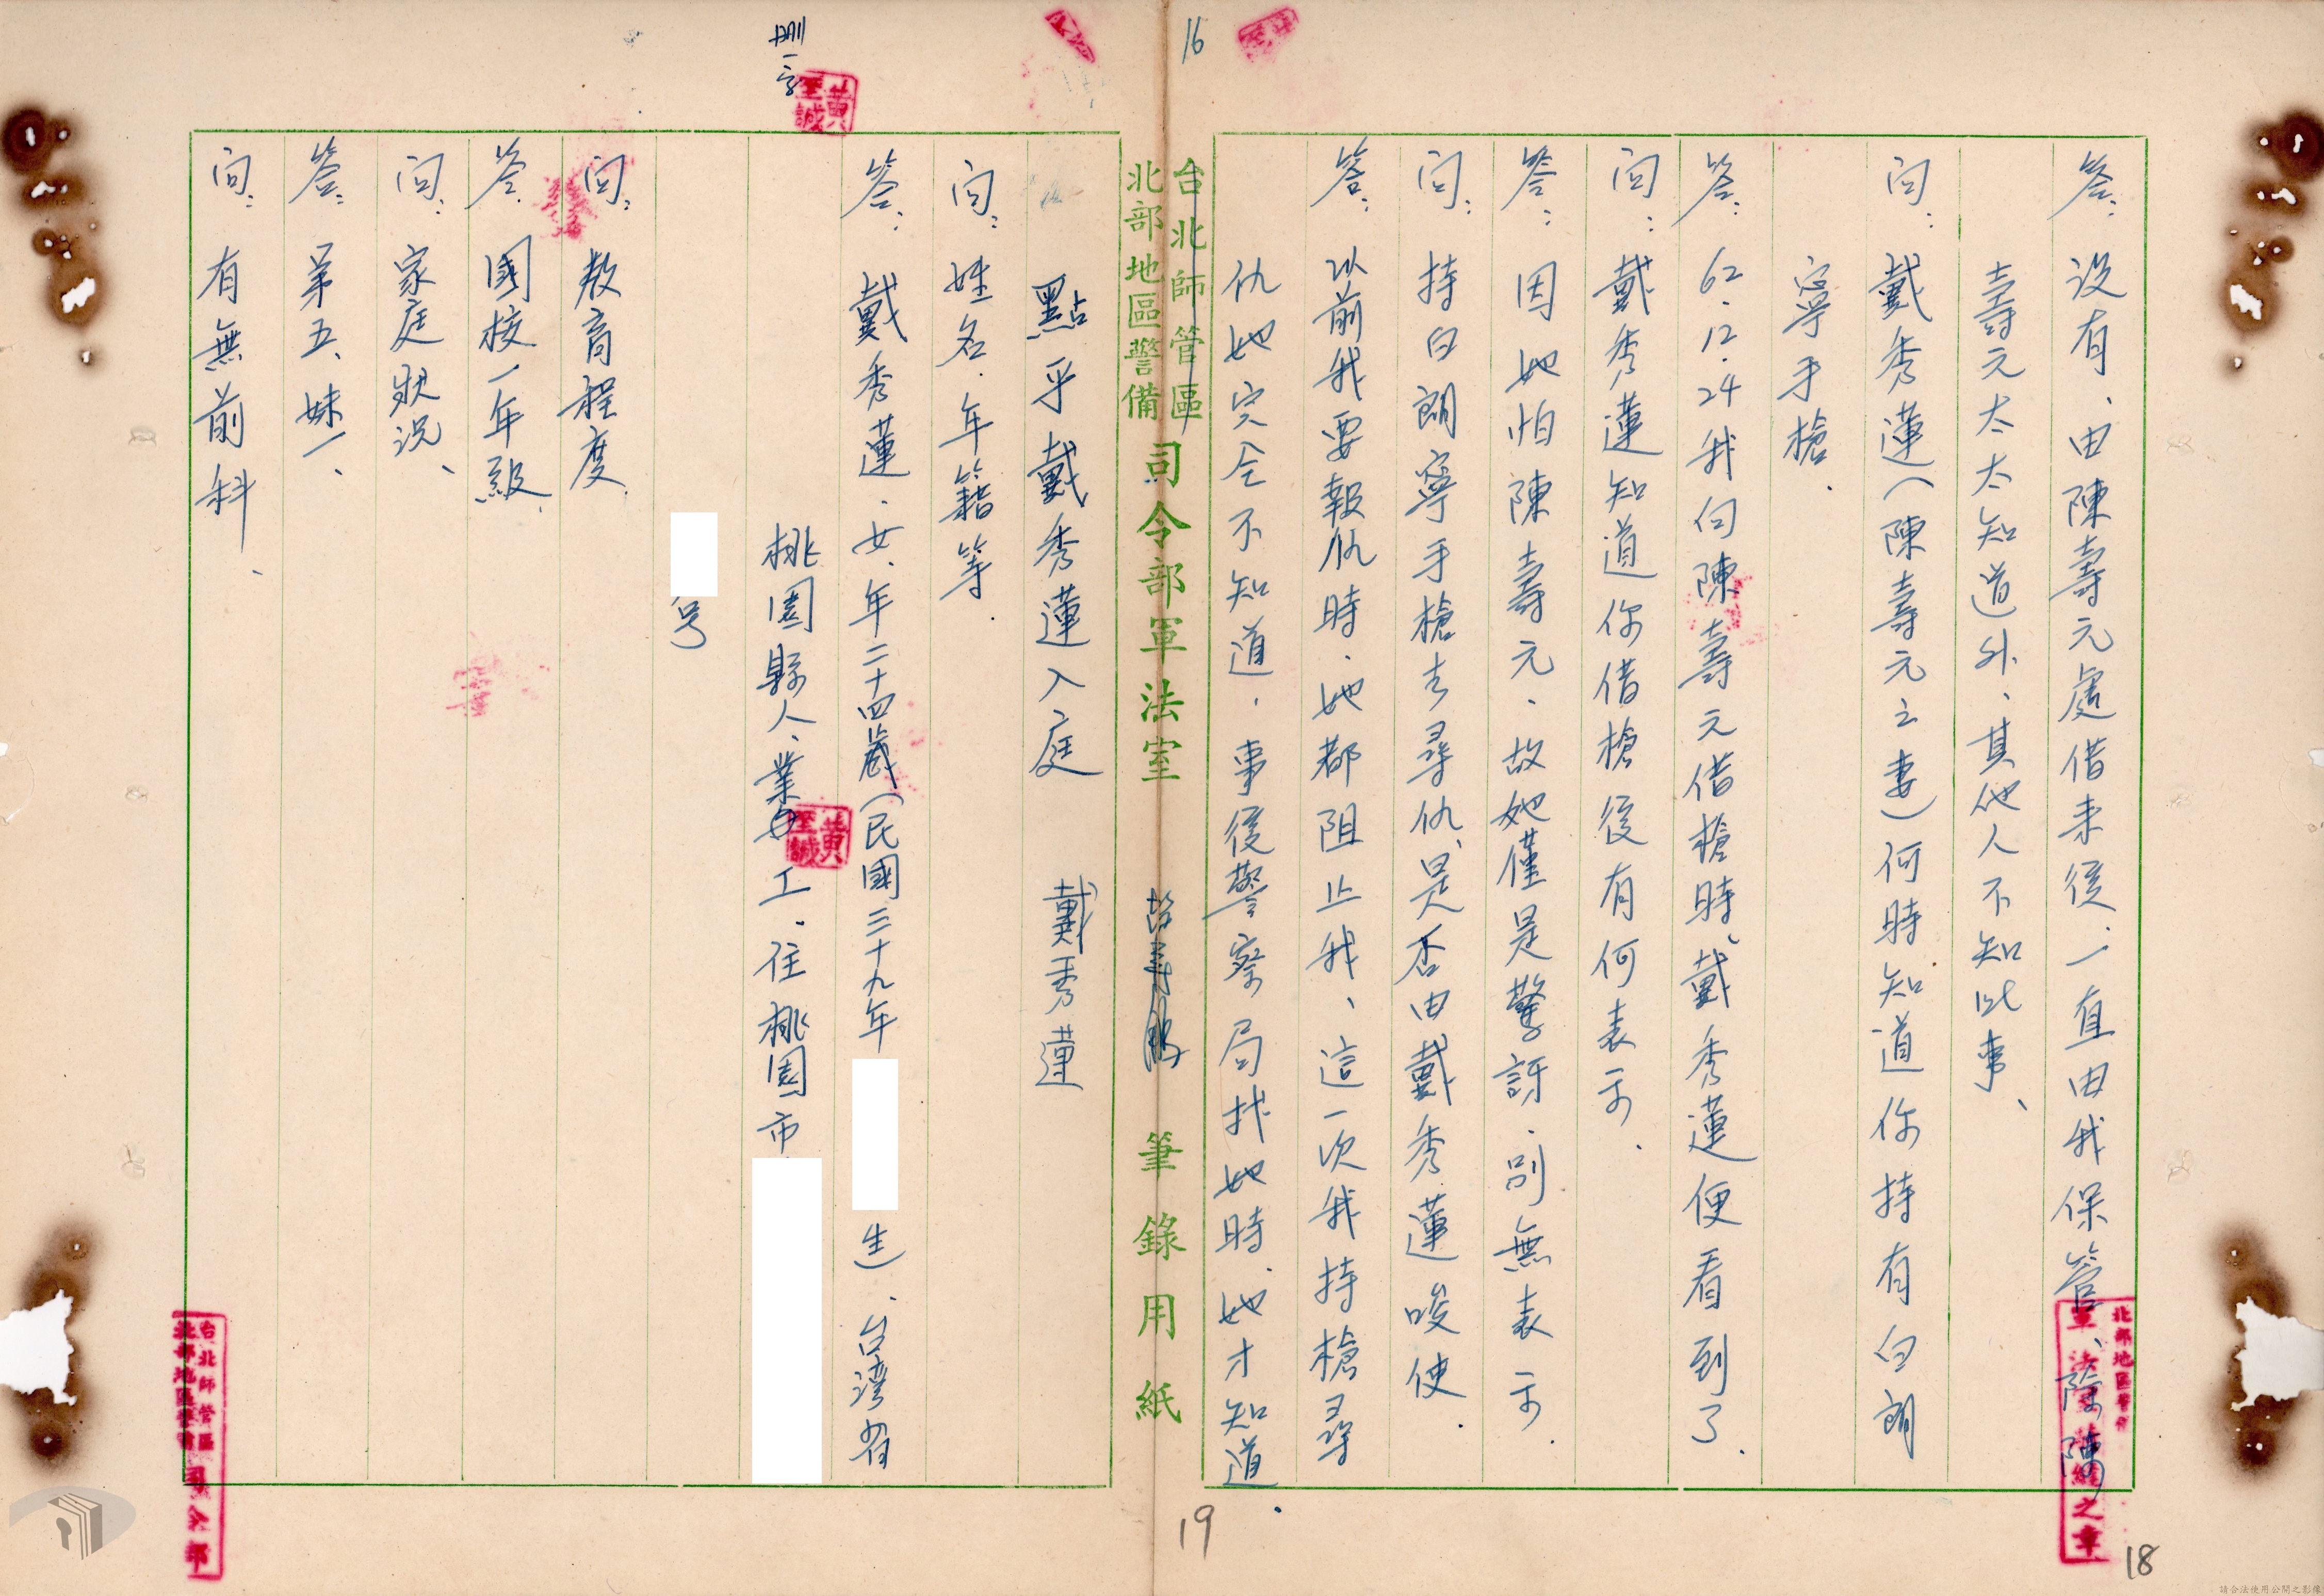 答：沒有、由陳壽元處借來後、一直由我保管、除陳
壽元太太知道外、其他人不知此事、
問：戴秀蓮（陳壽元之妻）何時知道你持有白朗
寧手槍．
答：62.12.24我向陳壽元借槍時、戴秀蓮便看到了．
問：戴秀蓮知道你借槍後有何表示．
答：因她怕陳壽元、故她僅是驚訝．別無表示．
問：持白朗寧手槍去尋仇、是否由戴秀蓮唆使．
答：以前我要報仇時．她都阻止我、這一次我持槍尋
仇她完全不知道．事後警察局找她時．她才知道．
16
台北師管區
北部地區警備
司令部軍法室
筆錄用紙
點乎戴秀蓮入庭　戴秀蓮
問：姓名．年籍等．
答：戴秀蓮．女．年二十四歲（民國三十九年　生）、台灣省
桃園縣人、業女工．住桃園市
号
問：教育程度．
答：國校一年級．
問：家庭狀況、
答：弟五、妹一、
問：有無前科、
刪一字
黃至誠
黃至誠
台北師管區
北部地區警備
司令部
北部地區警備
19
18
請合法使用公開之影像